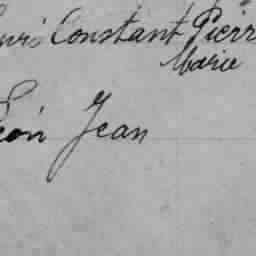 Constant Pierr
Marie
Jean